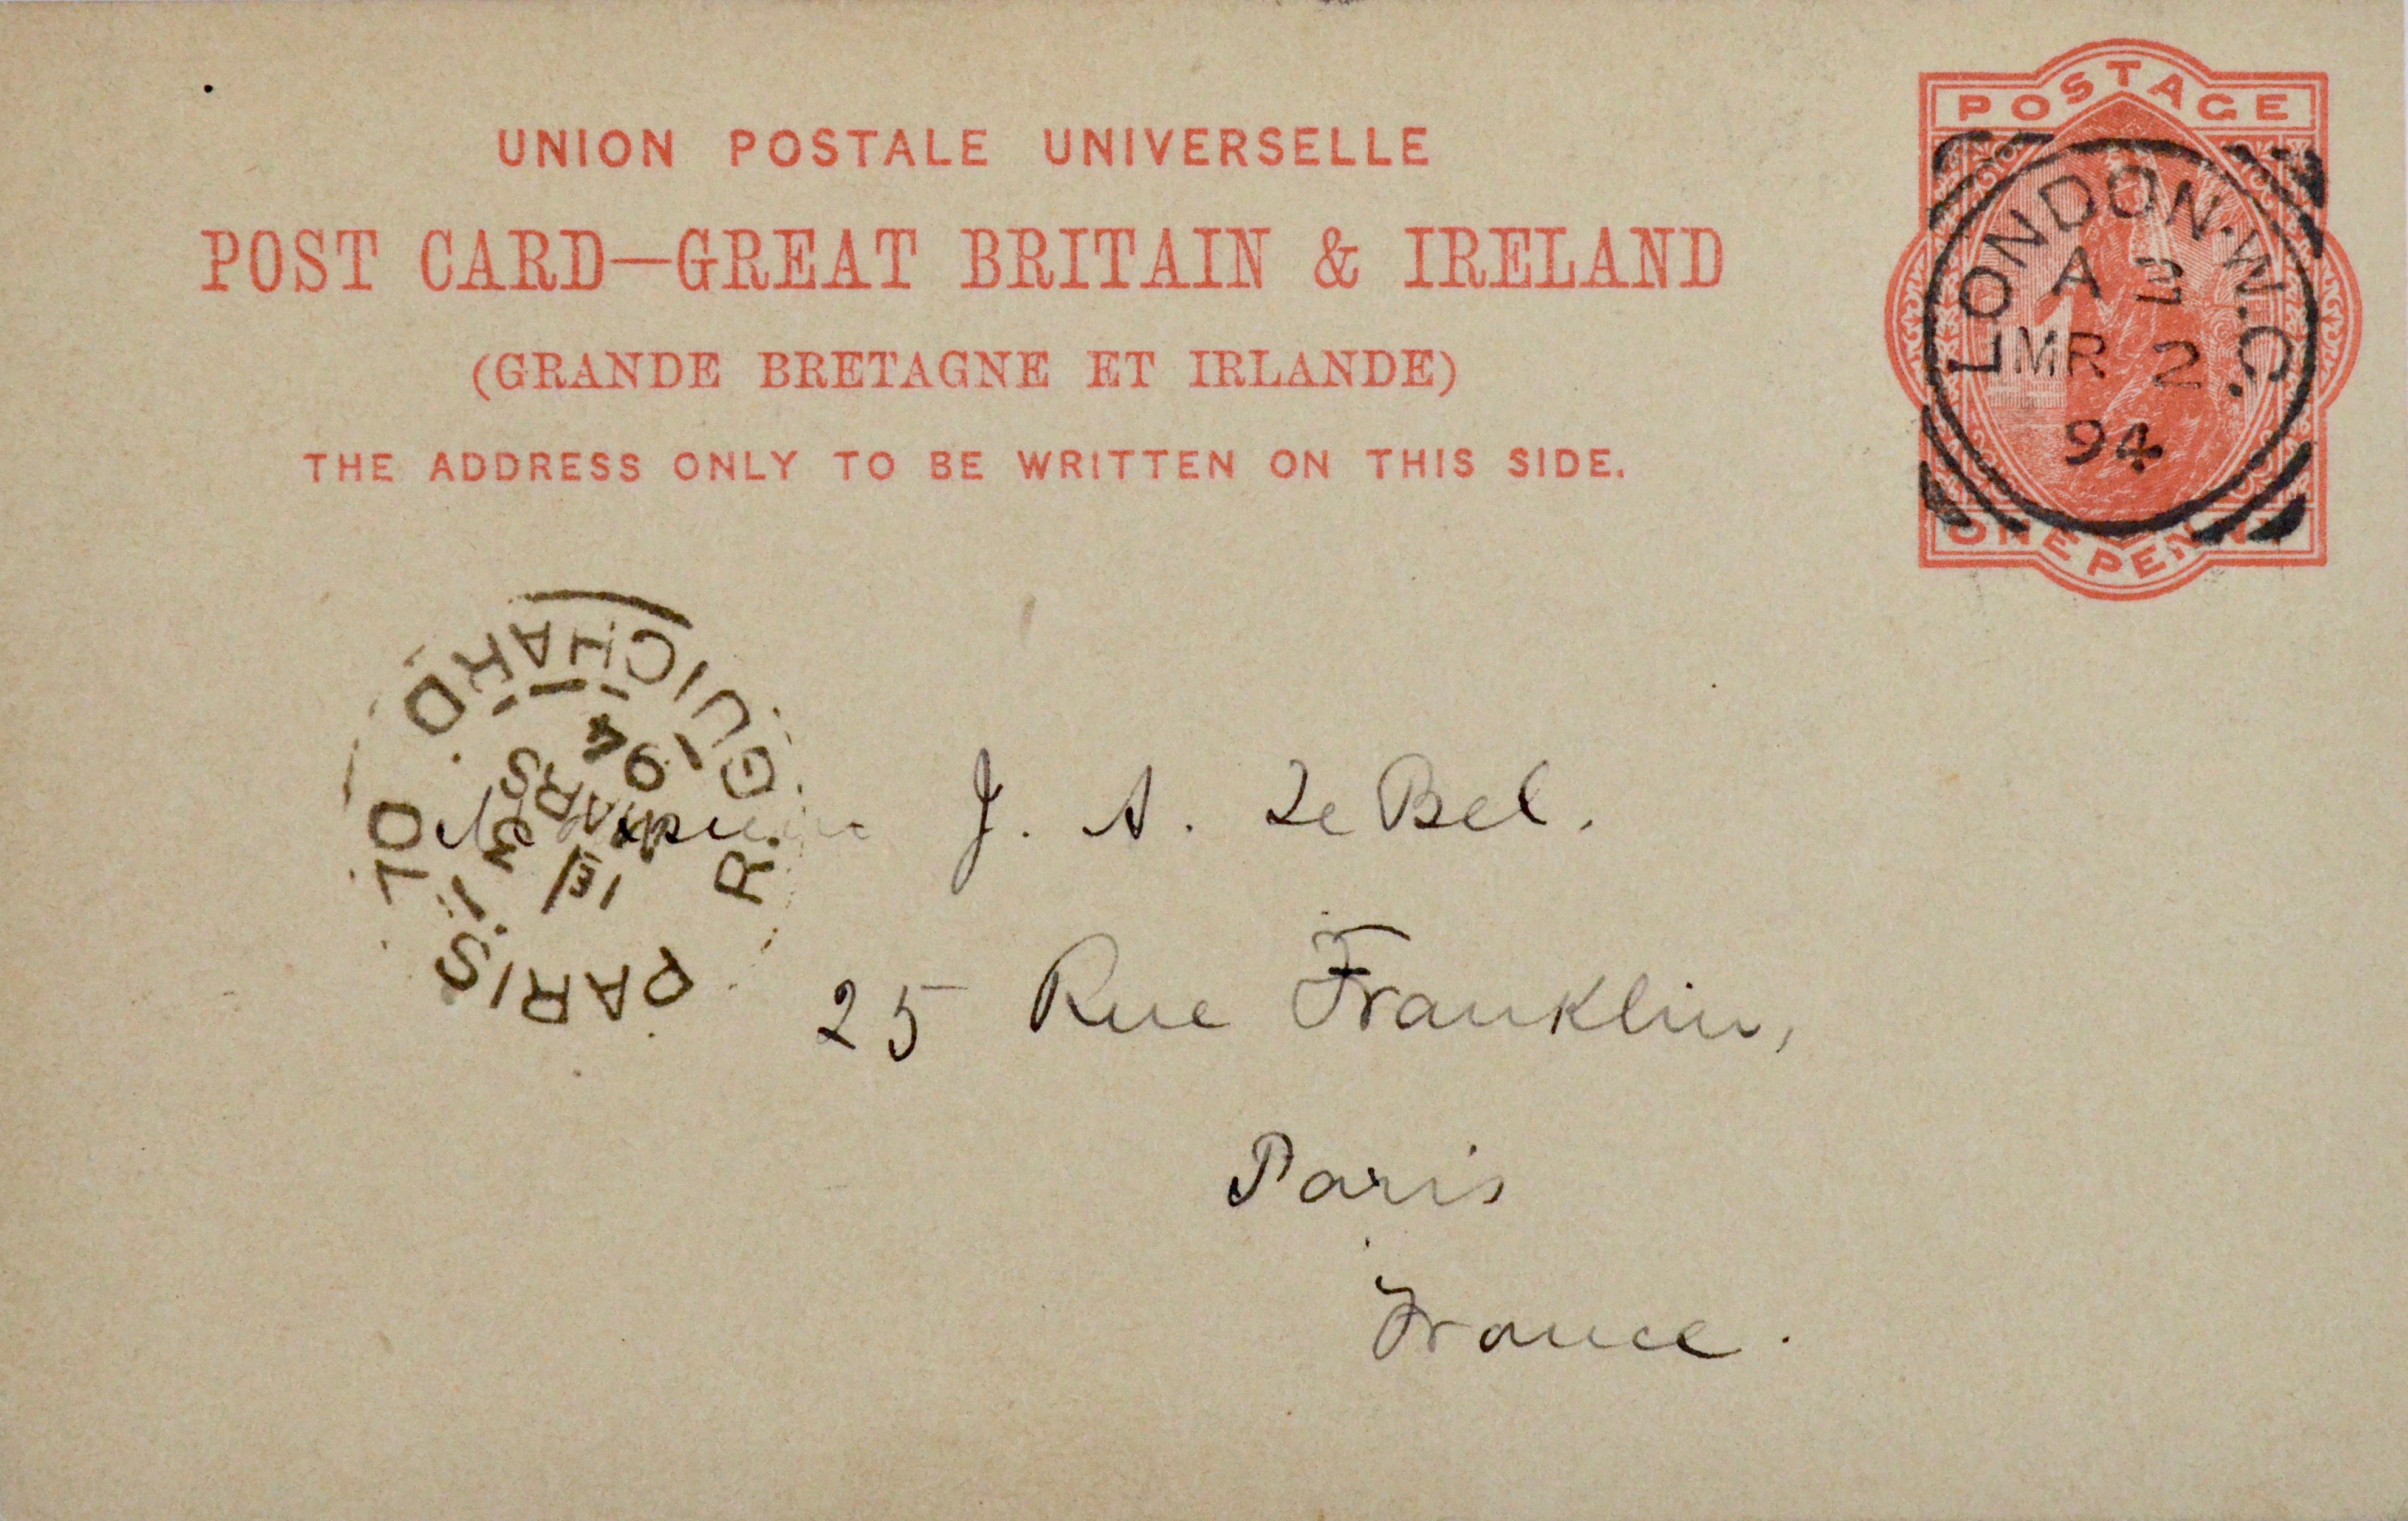 UNION POSTALE UNIVERSELLE
POST CARD—GREAT BRITAIN & IRELAND
(GRANDE BRETAGNE ET IRLANDE)
THE ADDRESS ONLY TO BE WRITTEN ON THIS SIDE.
POSTAGE
ONE PENNY
LONDON·W.C.
A
MR 2
94
PARIS
R. GUICHARD
94
MARS
3
J. A. Le Bel.
25 Rue Franklin,
Paris
France.